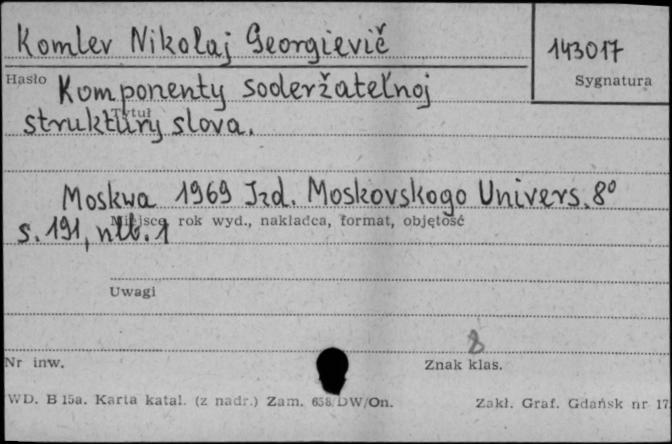 Komlev Nikołaj Georgievič
143017
Hasło
Sygnatura
Komponenty soderžatel'noj
Tytuł
struktury slova.
Moskwa 1969 Izd. Moskovskogo Univers. 8°
Miejsce, rok wyd., nakładca, format, objętość
s. 191, nlb. 1
Uwagi
8
Nr inw.
Znak klas.
WD. B 15a. Karta katal. (z nadr.) Zam. 658/DW/On.
Zakł. Graf. Gdańsk nr 17